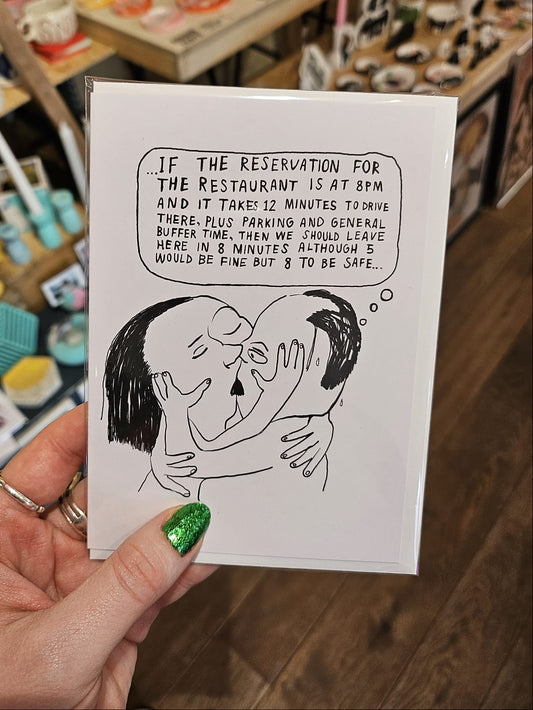 ...IF THE RESERVATION FOR
THE RESTAURANT IS AT 8PM
AND IT TAKES 12 MINUTES TO DRIVE
THERE, PLUS PARKING AND GENERAL
BUFFER TIME, THEN WE SHOULD LEAVE
HERE IN 8 MINUTES ALTHOUGH 5
WOULD BE FINE BUT 8 TO BE SAFE...